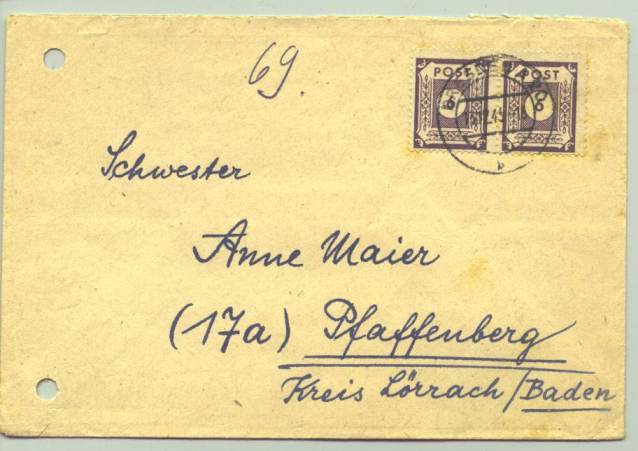 69.
POST POST
Schwester
Anne Maier
(17a) Pfaffenberg
Kreis Lörrach/Baden